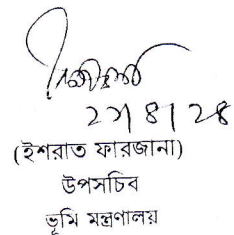 ২৯/৪/২৪
(ইশরাত ফারজানা)
উপসচিব
ভূমি মন্ত্রণালয়